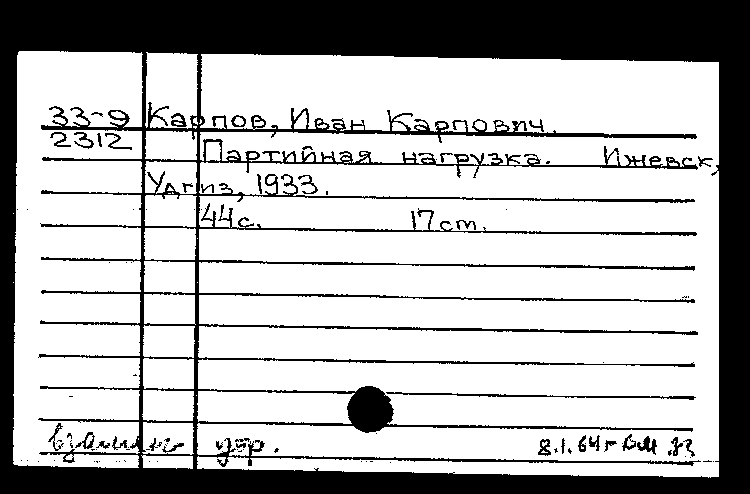 33-9 Карпов, Иван Карпович.
2312
Партийная нагрузка. Ижевск,
Удгиз, 1933.
44с. 17ст.
взамен утр. 8.1.64г